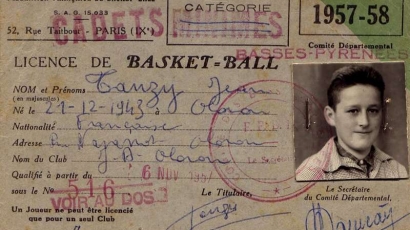 S.A.G. 15.033
CADETS MINIMES
CATÉGORIE
1957-58
52, Rue Taitbout - PARIS (IXe)
Comité Départemental
BASSES-PYRÉNÉES
LICENCE DE BASKET-BALL
NOM et Prénoms Tauzy Jean
(en majuscules)
Né le 21-12-1943 à Oloron
Nationalité Française
Adresse Oloron
Nom du Club J.A. Oloron
Qualifié à partir du 6 NOV 1957
sous le No 516
VOIR AU DOS
Le Titulaire,
Le Secrétaire
du Comité Départemental,
Un Joueur ne peut être licencié
que pour un seul Club